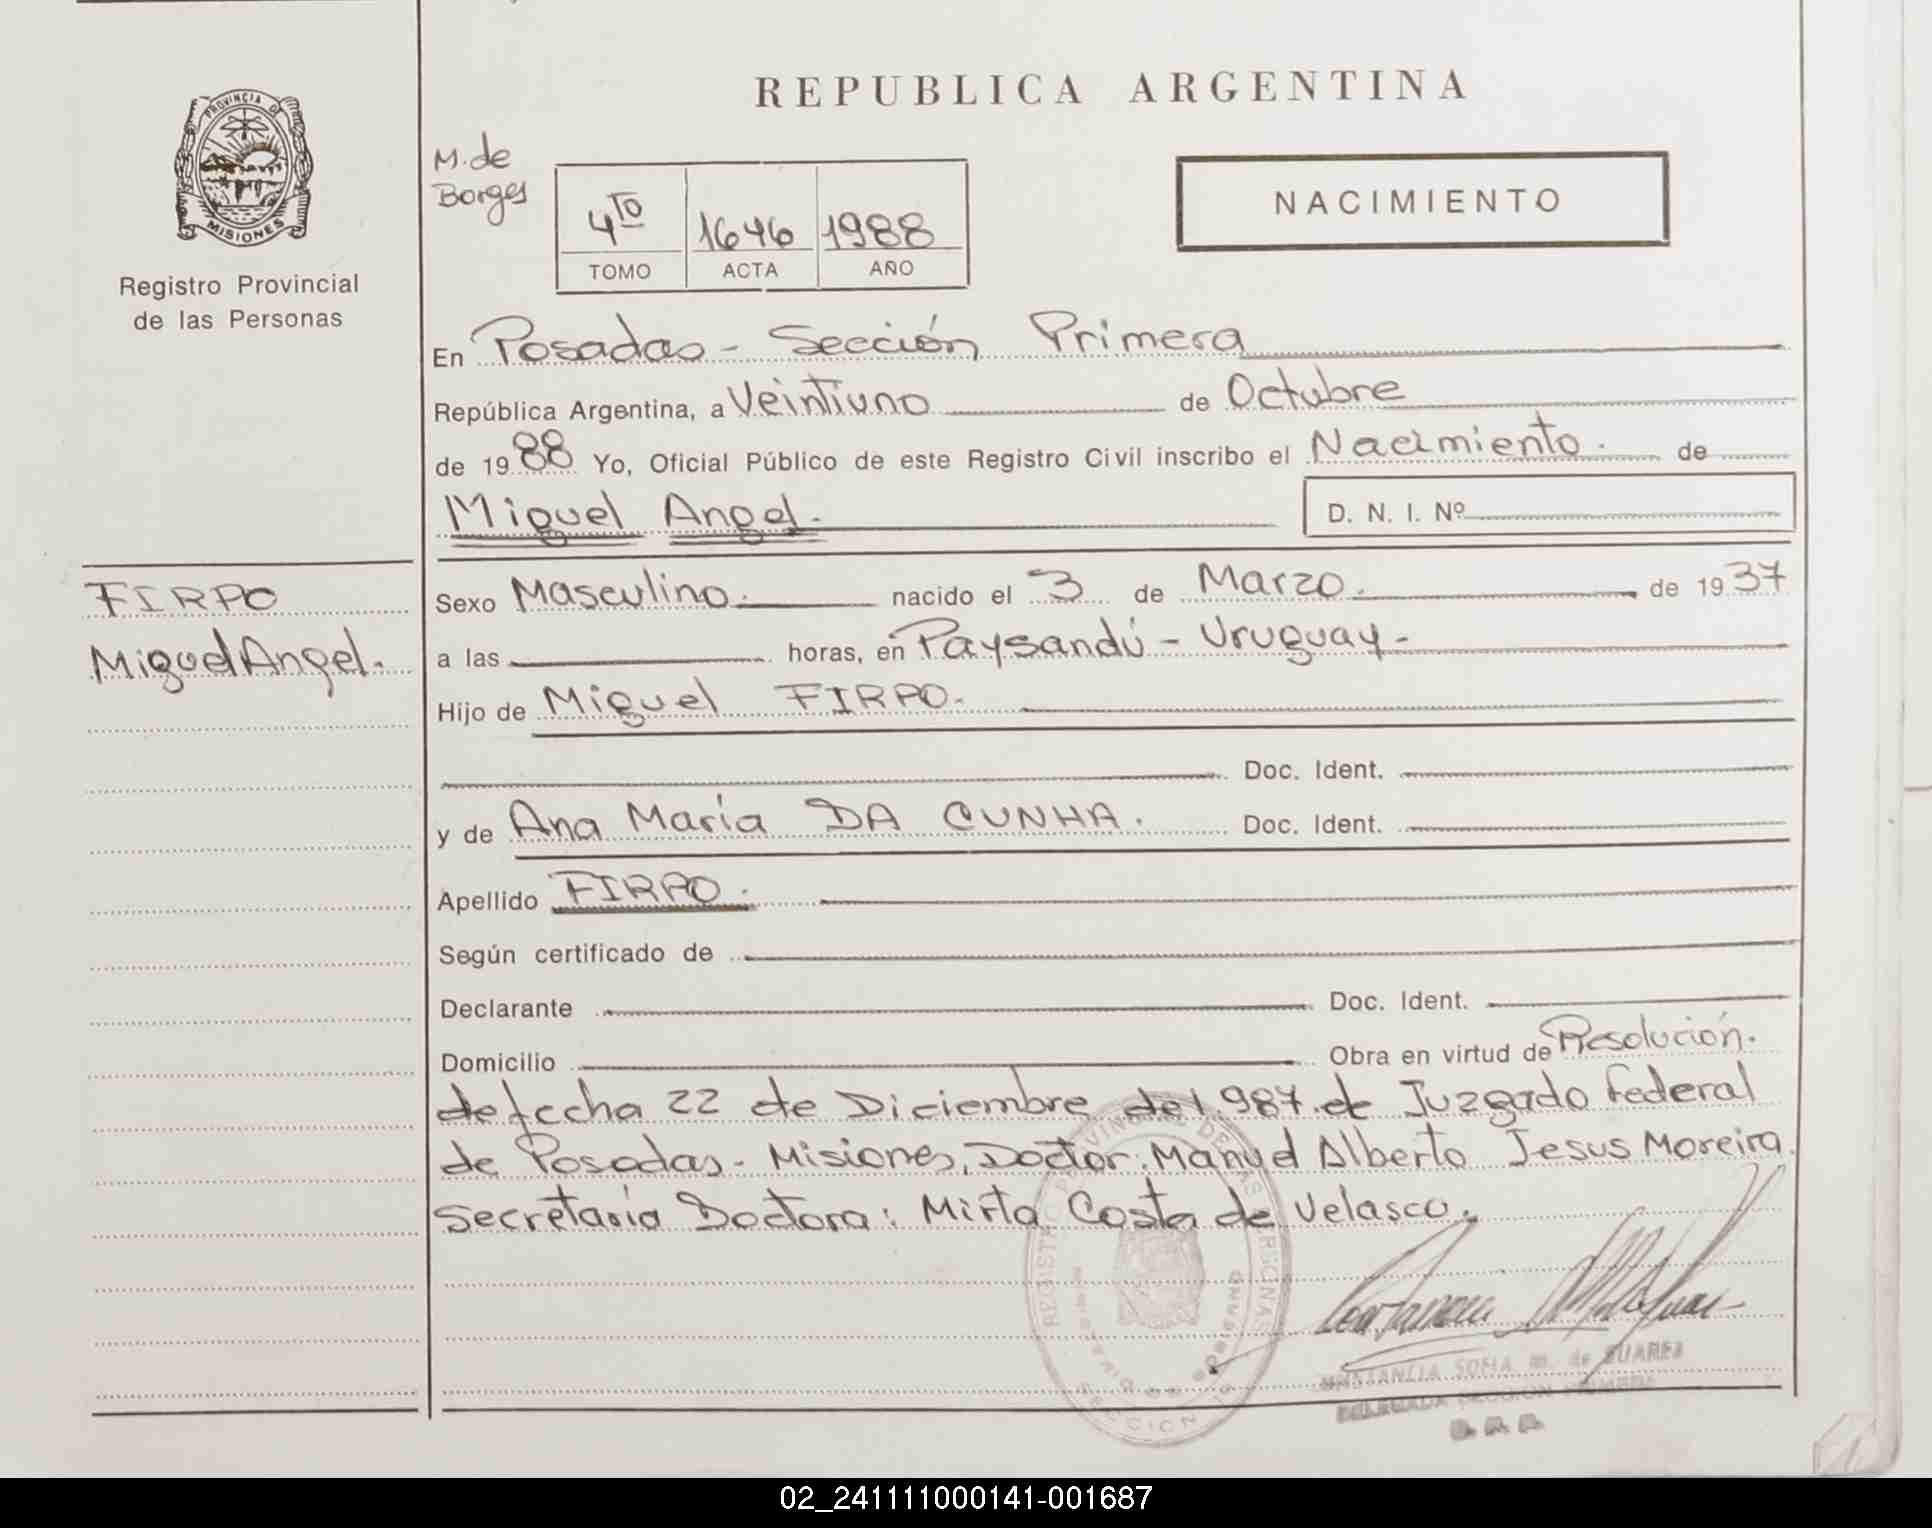 REPUBLICA ARGENTINA
PROVINCIA DE
MISIONES
Registro Provincial
de las Personas
M. de
Borges
4to 1646 1988
TOMO ACTA AÑO
NACIMIENTO
En Posadas - Sección Primera
República Argentina, a Veintiuno de Octubre
de 1988 Yo, Oficial Público de este Registro Civil inscribo el Nacimiento. de
Miguel Angel.
D. N. I. Nº
FIRPO
Miguel Angel.
Sexo Masculino. nacido el 3 de Marzo. de 1937
a las horas, en Paysandú - Uruguay -
Hijo de Miguel FIRPO.
Doc. Ident.
y de Ana María DA CUNHA. Doc. Ident.
Apellido FIRPO.
Según certificado de
Declarante Doc. Ident.
Domicilio Obra en virtud de Resolución.
de fecha 22 de Diciembre de 1.987. de Juzgado Federal
de Posadas - Misiones, Doctor: Manuel Alberto Jesus Moreira.
Secretaria Doctora: Mirta Costa de Velasco.
REGISTRO PROVINCIAL DE LAS PERSONAS
SECCION 1a
CONSTANCIA SOFIA M. de SUAREZ
DELEGADA SECCION PRIMERA
02_241111000141-001687